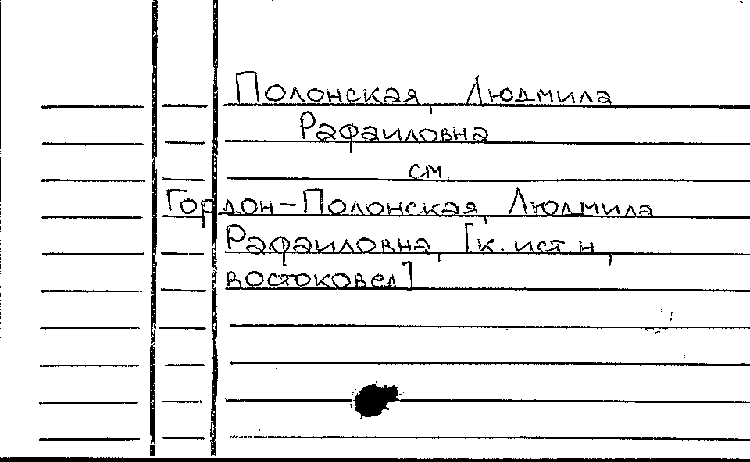 Полонская, Людмила
Рафаиловна
см.
Гордон-Полонская, Людмила
Рафаиловна, [к. ист. н.,
востоковед]